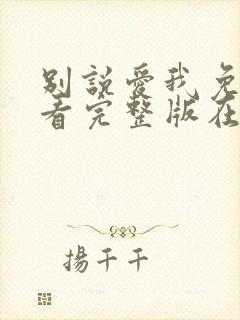 別說愛我免
看完整版在
揚千千